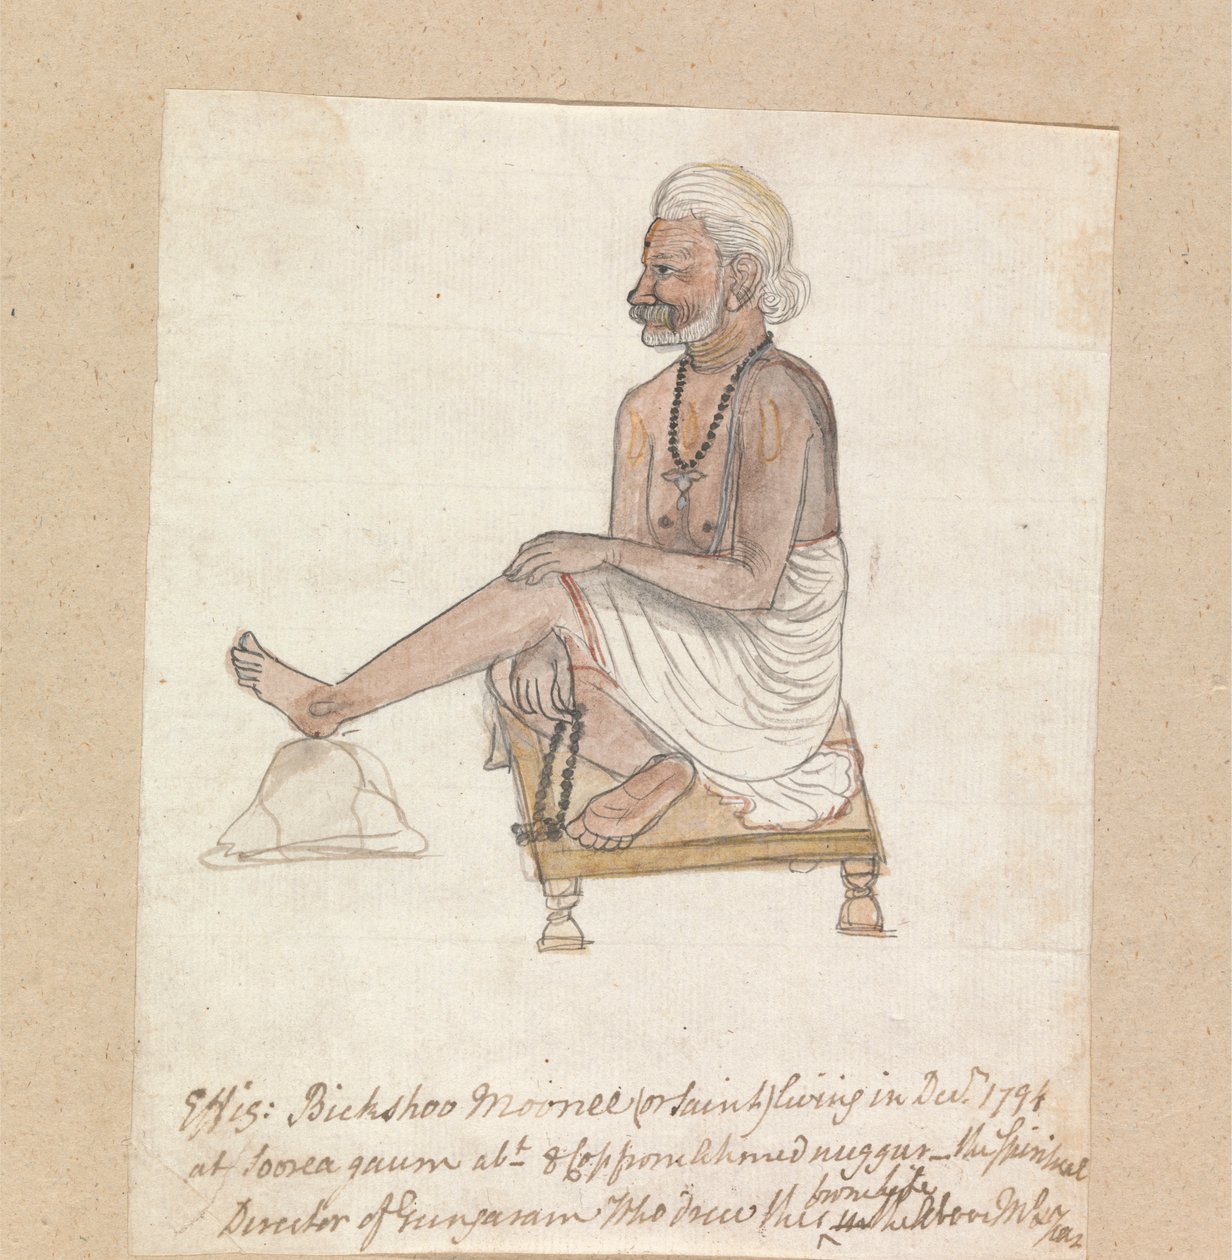 Effig: Bickshoo Moonee (or Saint) living in Decr. 1794
at Soorea gaum abt 8 Cos from Ahmednuggur – the Spiritual
from life
Director of Gungaram Who drew this in the above M &
Year